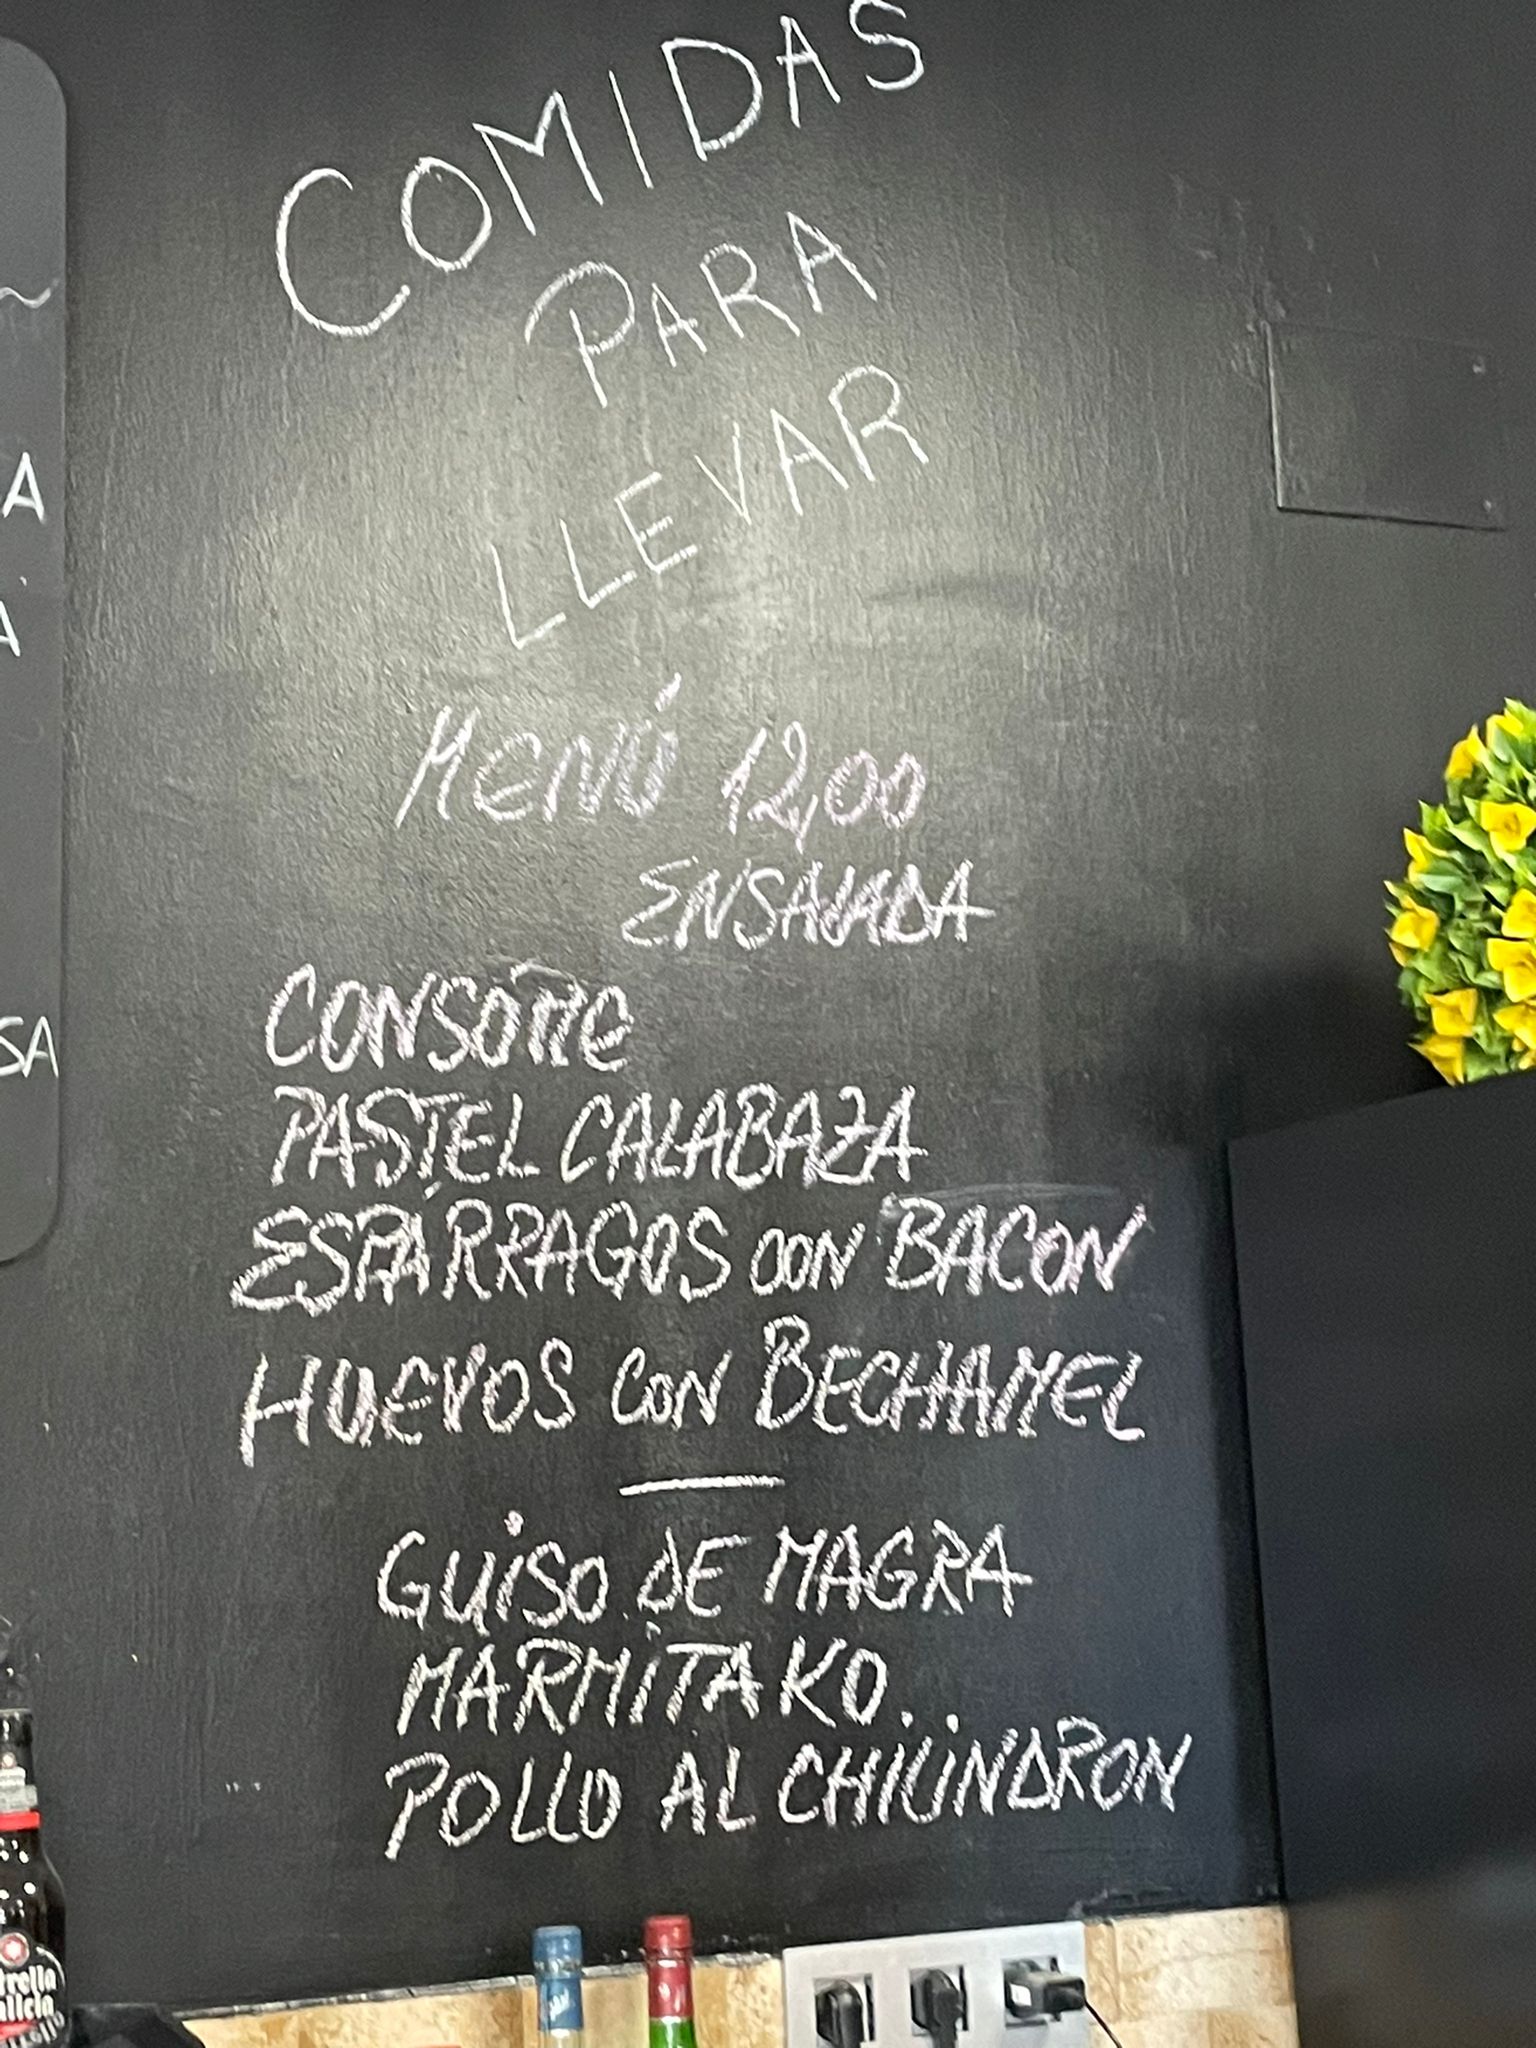 COMIDAS
PARA
LLEVAR
MENÚ 12,00
ENSALADA
CONSOME
PASTEL CALABAZA
ESPÁRRAGOS CON BACON
HUEVOS CON BECHAMEL
GUISO DE MAGRA
MARMITAKO
POLLO AL CHILINDRON
A
A
SA